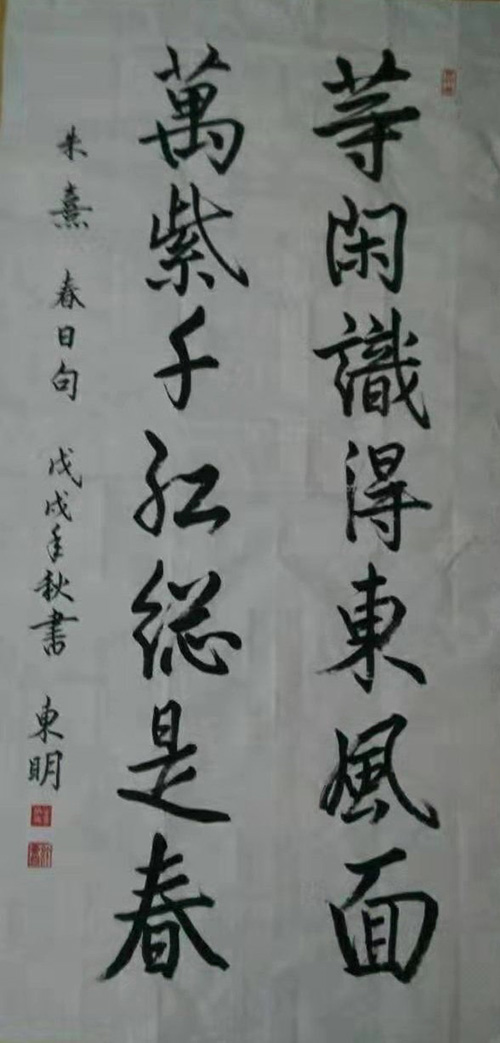 等閑識得東風面
萬紫千紅總是春
朱熹 春日句 戊戌年秋書 東明